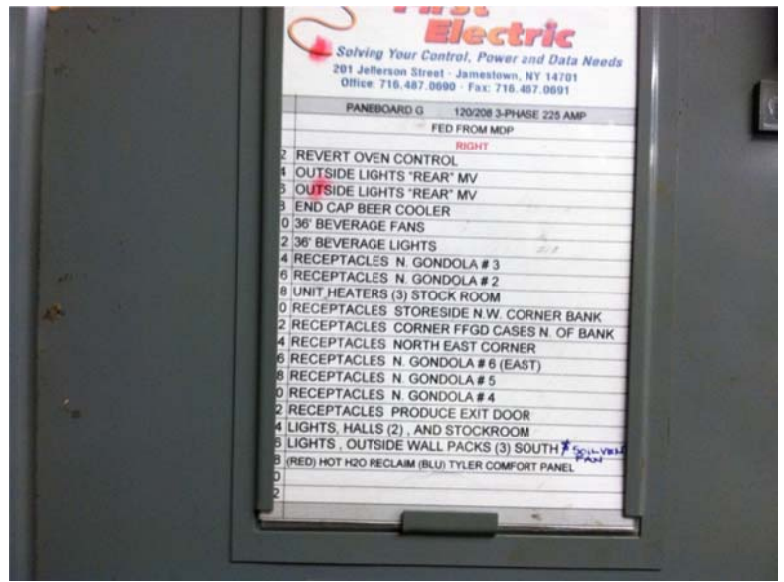 First
Electric
Solving Your Control, Power and Data Needs
201 Jefferson Street - Jamestown, NY 14701
Office: 716.487.0690 - Fax: 716.487.0691
PANEBOARD G 120/208 3-PHASE 225 AMP
FED FROM MDP
RIGHT
2 REVERT OVEN CONTROL
4 OUTSIDE LIGHTS "REAR" MV
6 OUTSIDE LIGHTS "REAR" MV
8 END CAP BEER COOLER
0 36' BEVERAGE FANS
2 36' BEVERAGE LIGHTS
4 RECEPTACLES N. GONDOLA # 3
6 RECEPTACLES N. GONDOLA # 2
8 UNIT HEATERS (3) STOCK ROOM
0 RECEPTACLES STORESIDE N.W. CORNER BANK
2 RECEPTACLES CORNER FFGD CASES N. OF BANK
4 RECEPTACLES NORTH EAST CORNER
6 RECEPTACLES N. GONDOLA # 6 (EAST)
8 RECEPTACLES N. GONDOLA # 5
0 RECEPTACLES N. GONDOLA # 4
2 RECEPTACLES PRODUCE EXIT DOOR
4 LIGHTS, HALLS (2) , AND STOCKROOM
6 LIGHTS , OUTSIDE WALL PACKS (3) SOUTH
FAN
8 (RED) HOT H2O RECLAIM (BLU) TYLER COMFORT PANEL
0
2